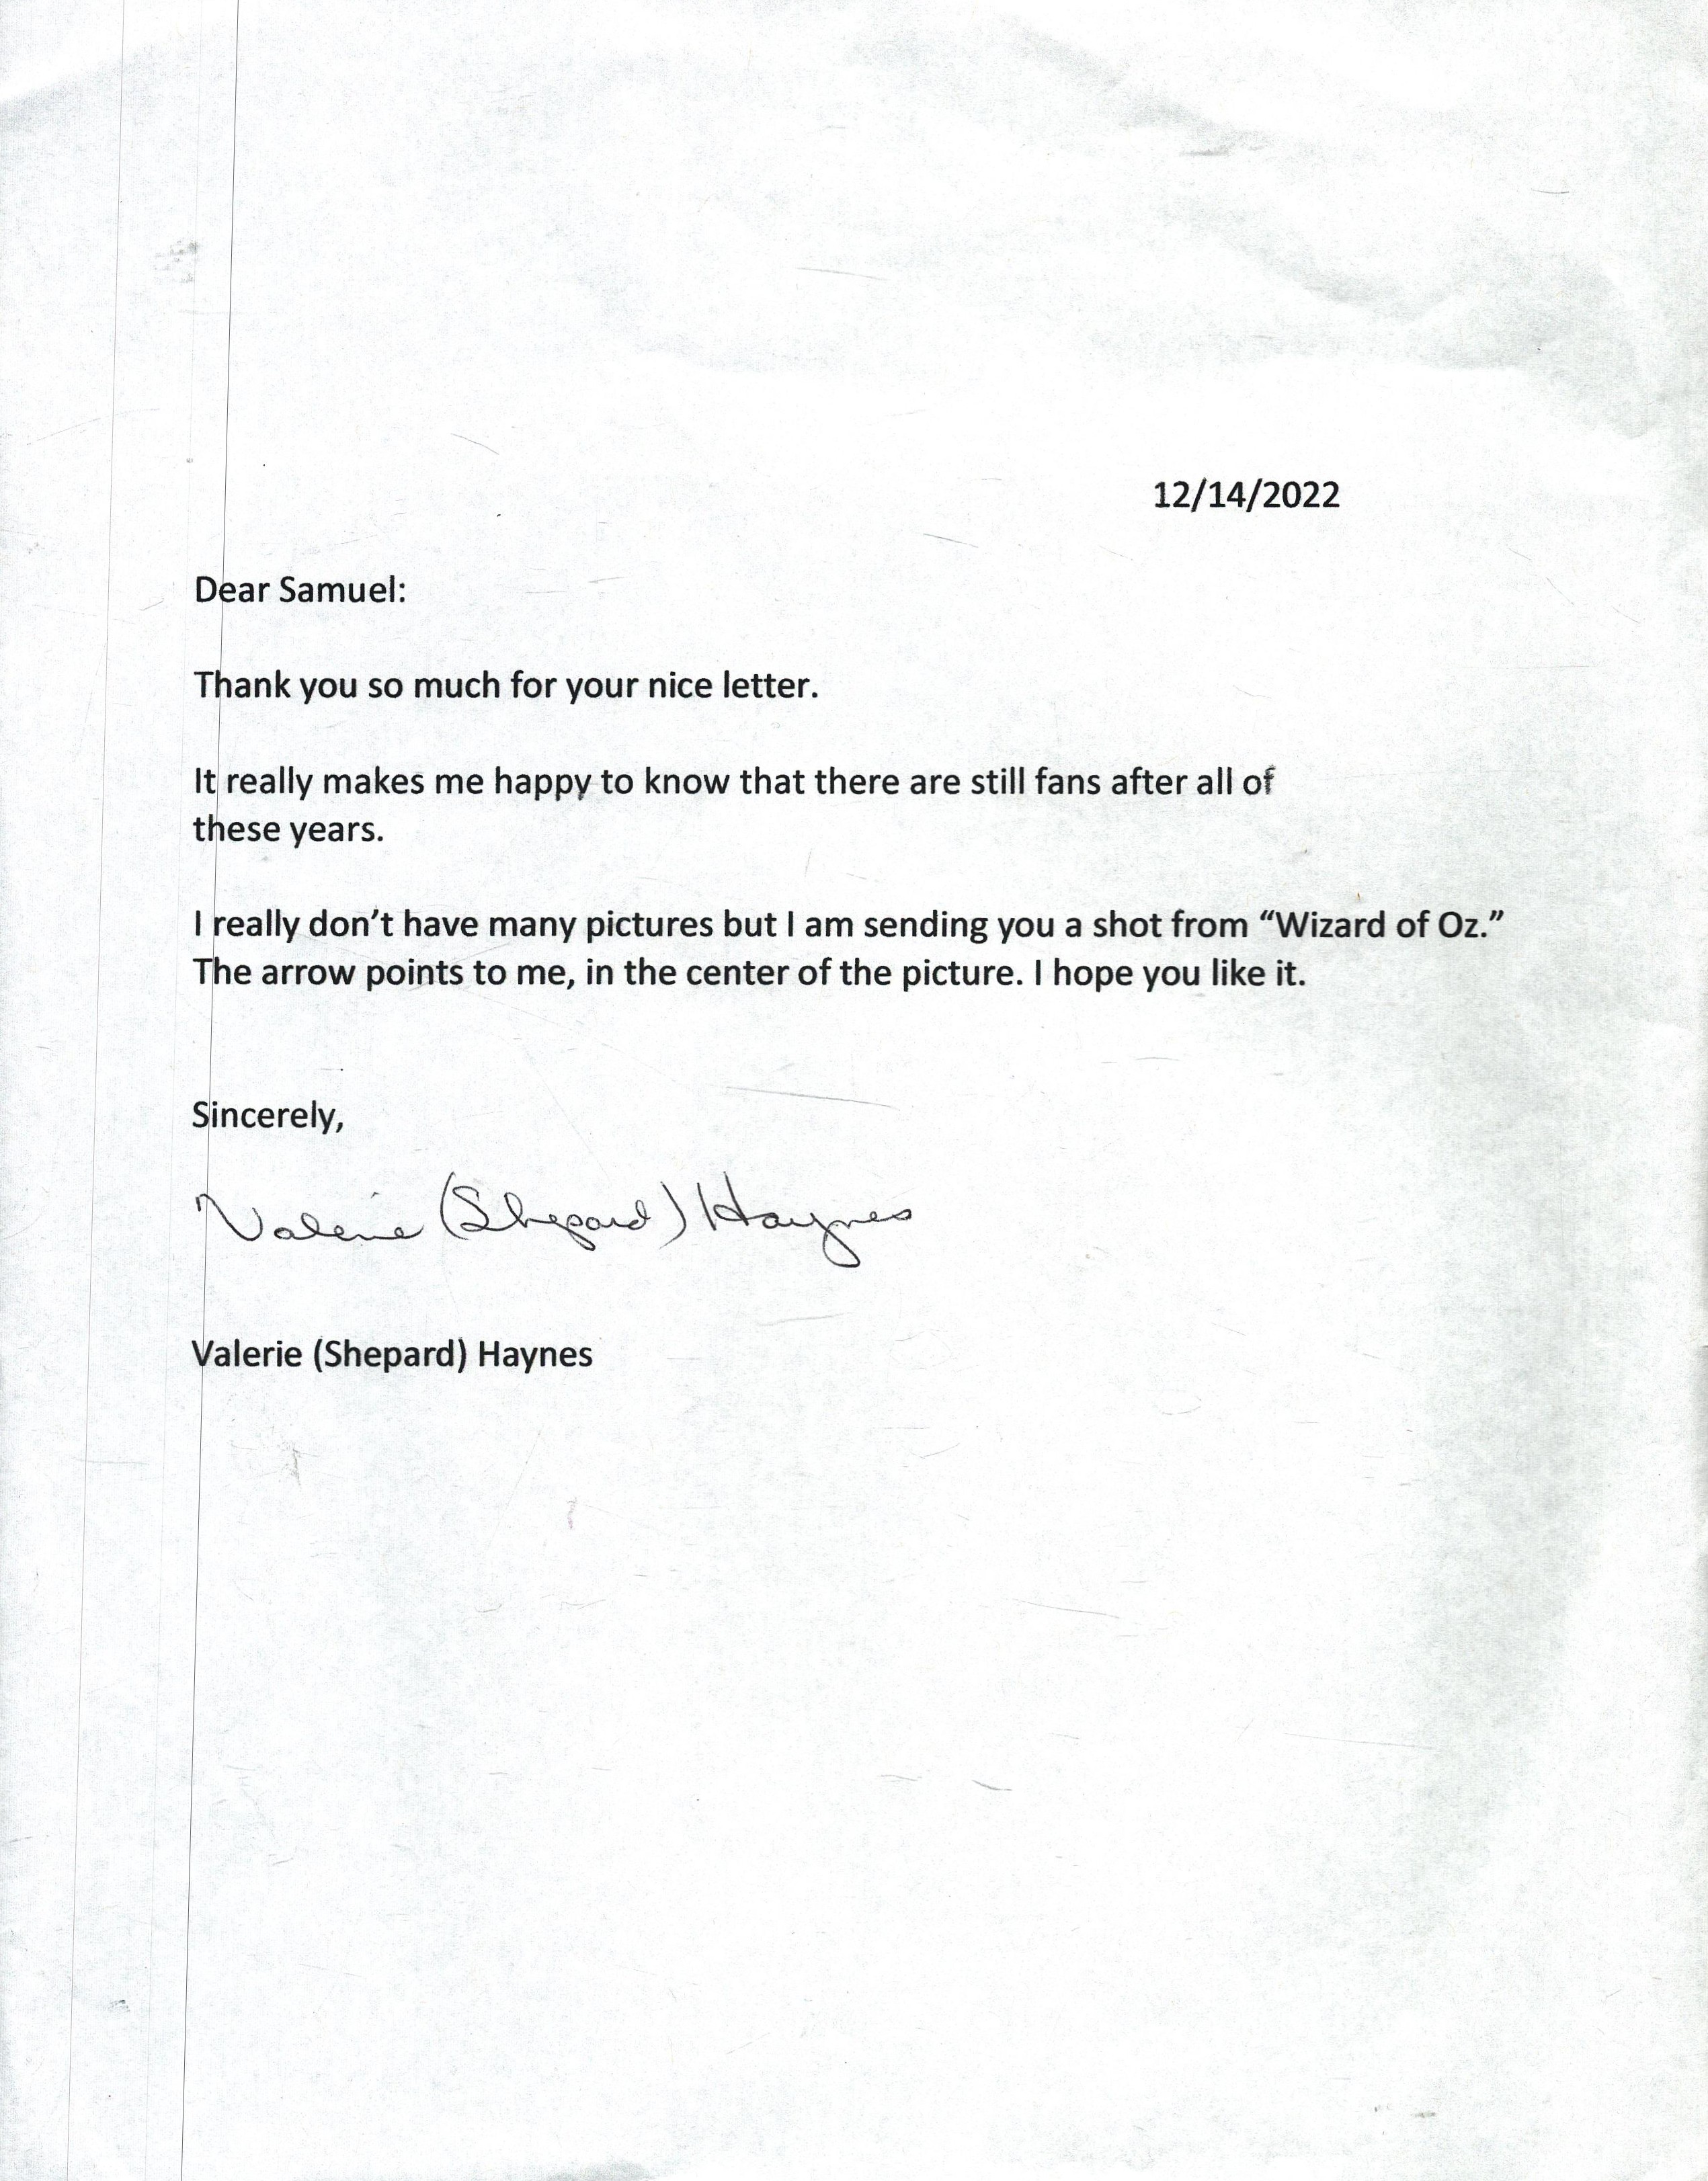 12/14/2022
Dear Samuel:
Thank you so much for your nice letter.
It really makes me happy to know that there are still fans after all of
these years.
I really don’t have many pictures but I am sending you a shot from “Wizard of Oz.”
The arrow points to me, in the center of the picture. I hope you like it.
Sincerely,
Valerie (Shepard) Haynes
Valerie (Shepard) Haynes